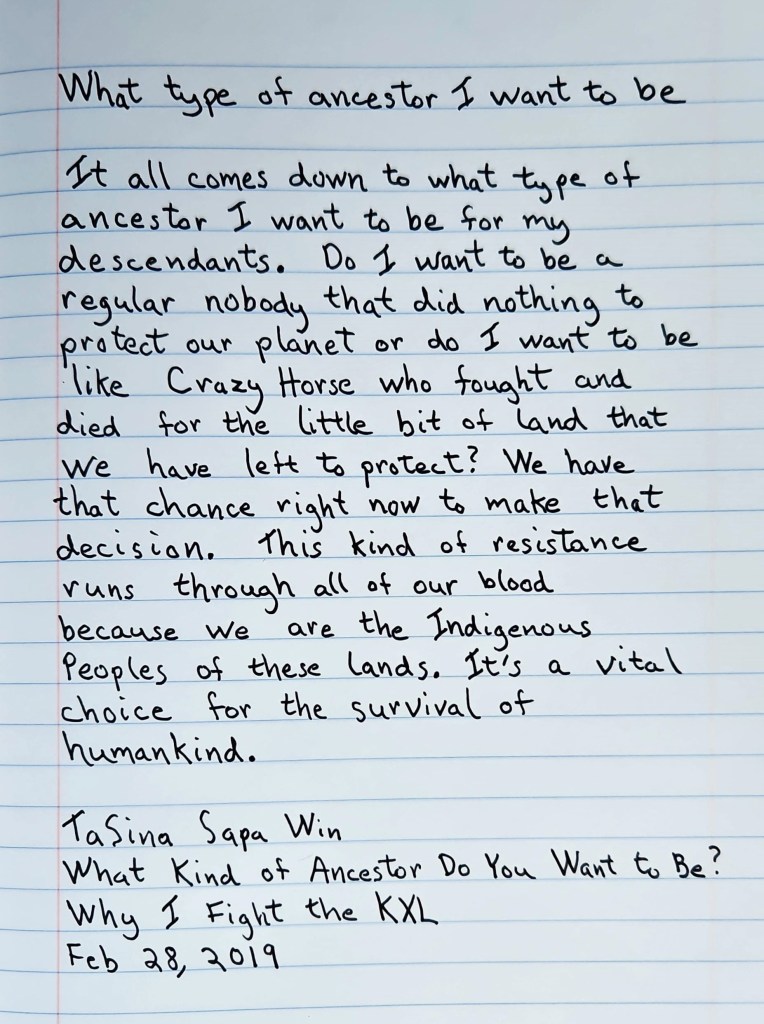 What type of ancestor I want to be
It all comes down to what type of
ancestor I want to be for my
descendants. Do I want to be a
regular nobody that did nothing to
protect our planet or do I want to be
like Crazy Horse who fought and
died for the little bit of land that
we have left to protect? We have
that chance right now to make that
decision. This kind of resistance
runs through all of our blood
because we are the Indigenous
Peoples of these lands. It's a vital
choice for the survival of
humankind.
TaSina Sapa Win
What Kind of Ancestor Do You Want to Be?
Why I Fight the KXL
Feb 28, 2019